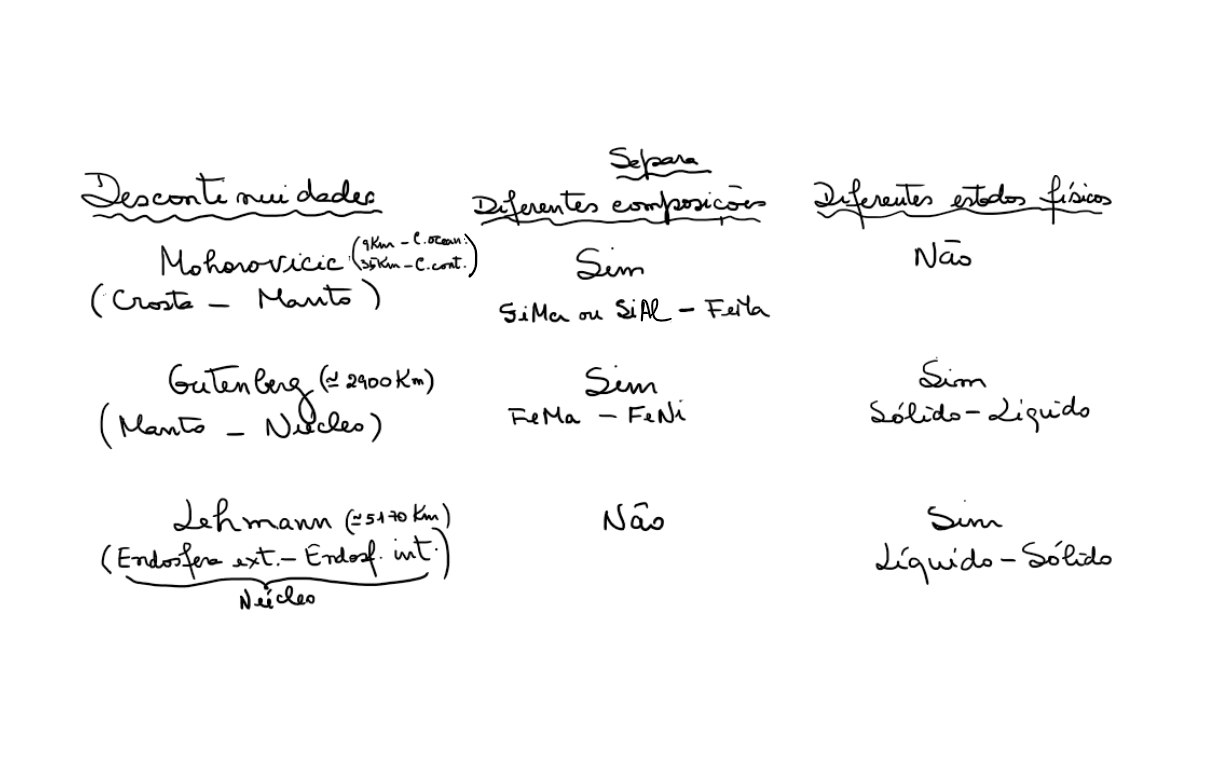 Separa
Descontinuidades Diferentes composições Diferentes estados físicos
Mohorovicic (9Km - C. ocean. 35Km - C. cont.) Sim Não
(Crosta - Manto) SiMa ou SiAl - FeMa
Gutenberg (≃ 2900 Km) Sim Sim
(Manto - Núcleo) FeMa - FeNi Sólido - Líquido
Lehmann (≃ 5170 Km) Não Sim
(Endosfera ext. - Endosf. int.) Líquido - Sólido
Núcleo